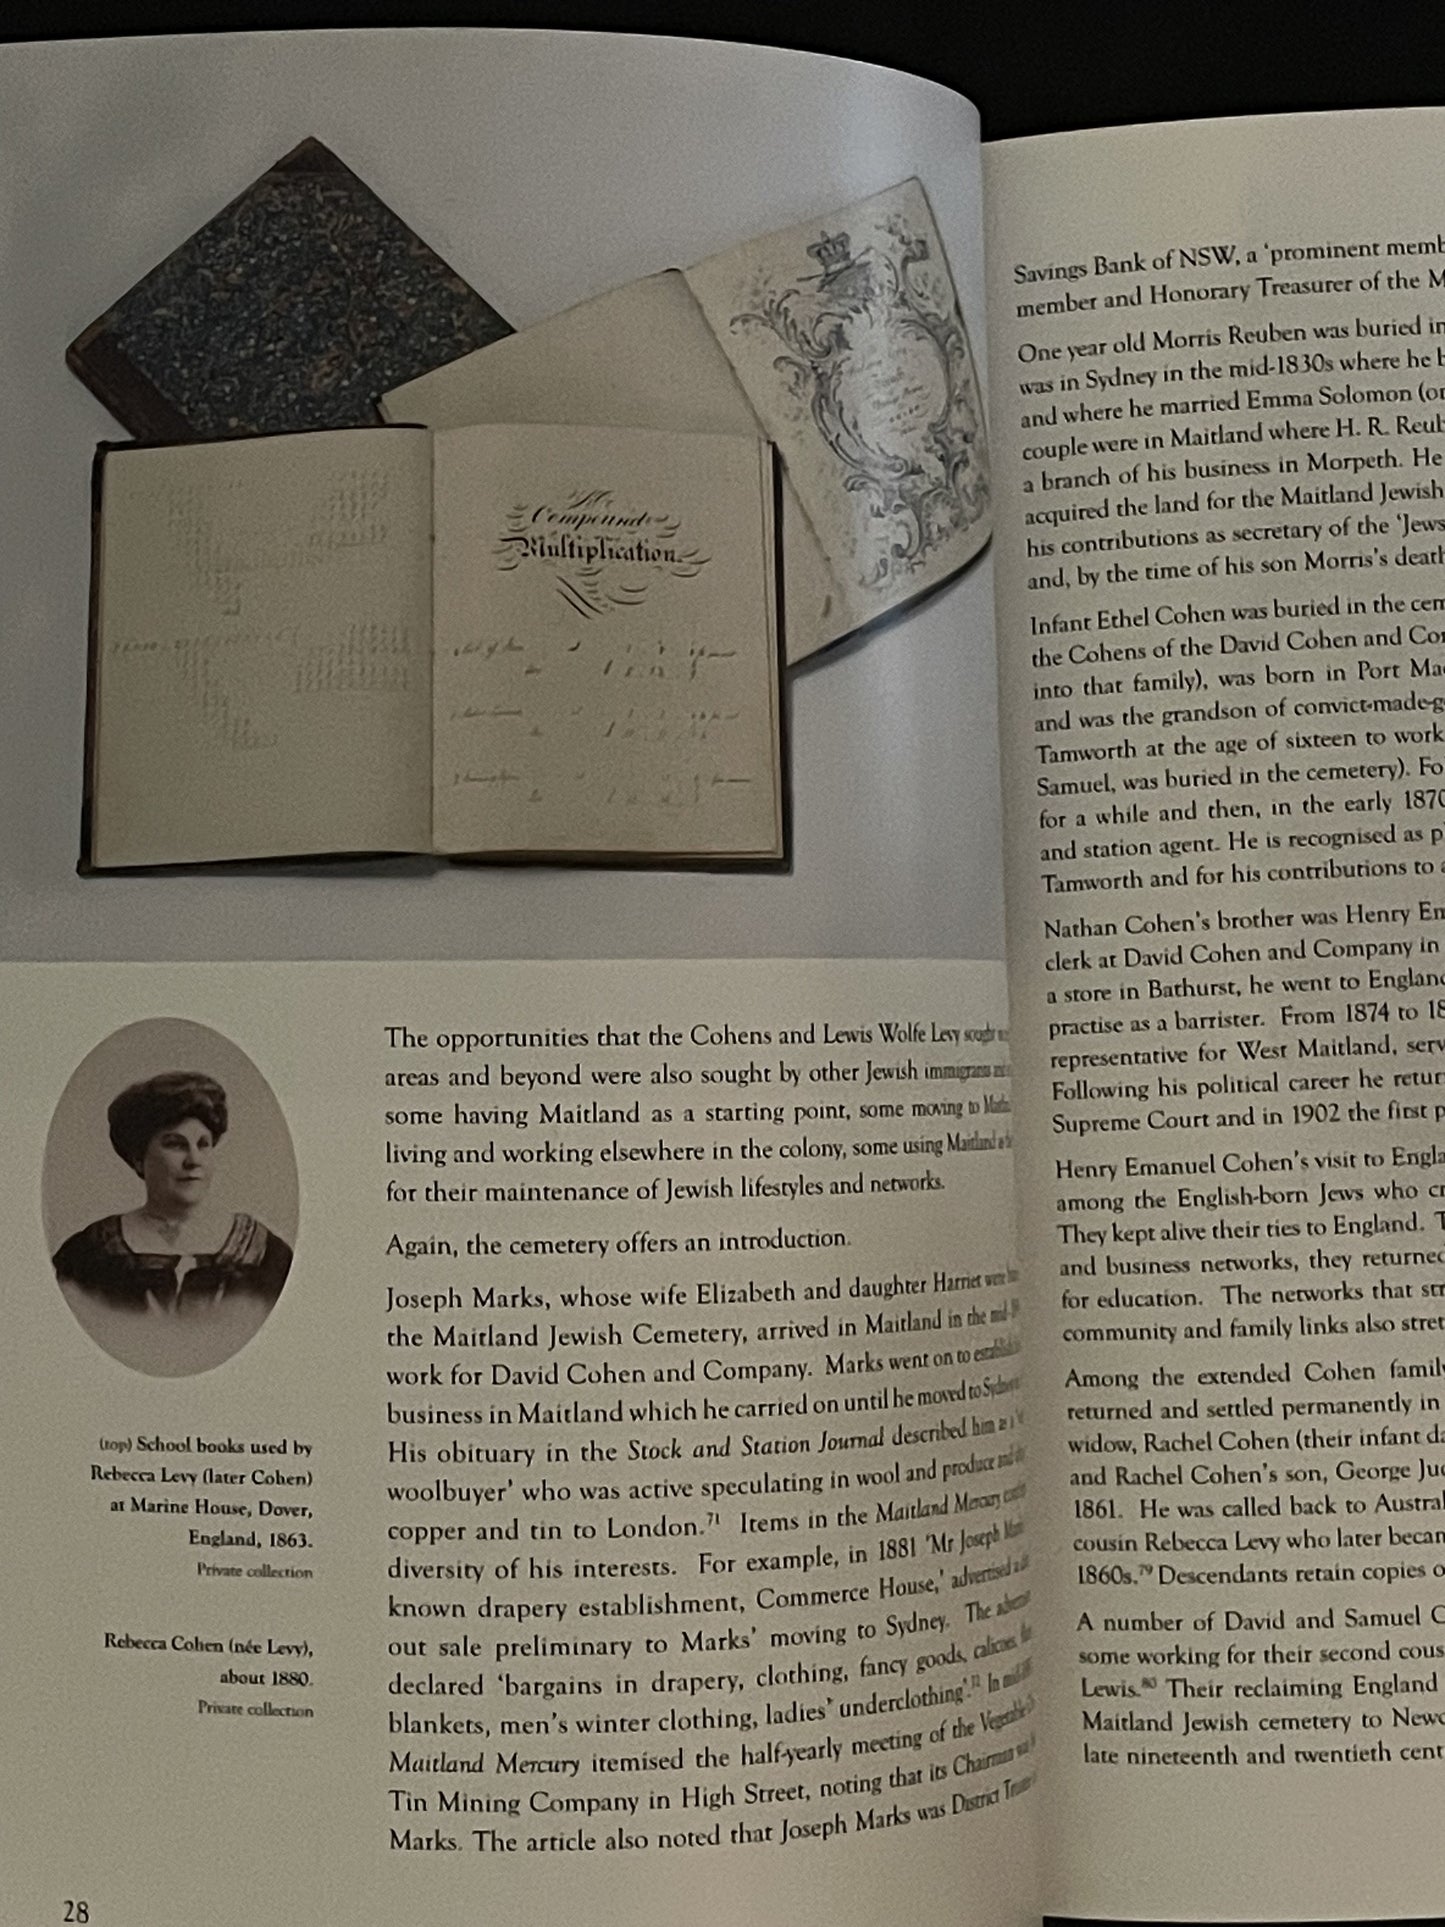 Compound
Multiplication.
(top) School books used by
Rebecca Levy (later Cohen)
at Marine House, Dover,
England, 1863.
Private collection
Rebecca Cohen (née Levy),
about 1880.
Private collection
The opportunities that the Cohens and Lewis Wolfe Levy sought
areas and beyond were also sought by other Jewish immigrants
some having Maitland as a starting point, some moving to
living and working elsewhere in the colony, some using Maitland
for their maintenance of Jewish lifestyles and networks.
Again, the cemetery offers an introduction.
Joseph Marks, whose wife Elizabeth and daughter Harriet were
the Maitland Jewish Cemetery, arrived in Maitland in the
work for David Cohen and Company. Marks went on to establish
business in Maitland which he carried on until he moved to
His obituary in the Stock and Station Journal described him as a
woolbuyer' who was active speculating in wool and produce and
copper and tin to London.71 Items in the Maitland Mercury
diversity of his interests. For example, in 1881 'Mr Joseph
known drapery establishment, Commerce House,' advertised a
out sale preliminary to Marks' moving to Sydney. The
declared 'bargains in drapery, clothing, fancy goods, calicoes,
blankets, men's winter clothing, ladies' underclothing'. In
Maitland Mercury itemised the half-yearly meeting of the Vegetable
Tin Mining Company in High Street, noting that its Chairman was
Marks. The article also noted that Joseph Marks was District
28
Savings Bank of NSW, a 'prominent memb
member and Honorary Treasurer of the M
One year old Morris Reuben was buried in
was in Sydney in the mid-1830s where he b
and where he married Emma Solomon (or
couple were in Maitland where H. R. Reub
a branch of his business in Morpeth. He
acquired the land for the Maitland Jewish
his contributions as secretary of the 'Jews
and, by the time of his son Morris's death
Infant Ethel Cohen was buried in the cem
the Cohens of the David Cohen and Com
into that family), was born in Port Mac
and was the grandson of convict-made-g
Tamworth at the age of sixteen to work
Samuel, was buried in the cemetery). Fo
for a while and then, in the early 1870
and station agent. He is recognised as p
Tamworth and for his contributions to a
Nathan Cohen's brother was Henry Em
clerk at David Cohen and Company in
a store in Bathurst, he went to England
practise as a barrister. From 1874 to 18
representative for West Maitland, serv
Following his political career he retur
Supreme Court and in 1902 the first p
Henry Emanuel Cohen's visit to Engla
among the English-born Jews who cr
They kept alive their ties to England. T
and business networks, they returned
for education. The networks that str
community and family links also stret
Among the extended Cohen family
returned and settled permanently in
widow, Rachel Cohen (their infant da
and Rachel Cohen's son, George Jud
1861. He was called back to Austral
cousin Rebecca Levy who later becam
1860s.79 Descendants retain copies o
A number of David and Samuel C
some working for their second cous
Lewis.80 Their reclaiming England
Maitland Jewish cemetery to Newc
late nineteenth and twentieth cent